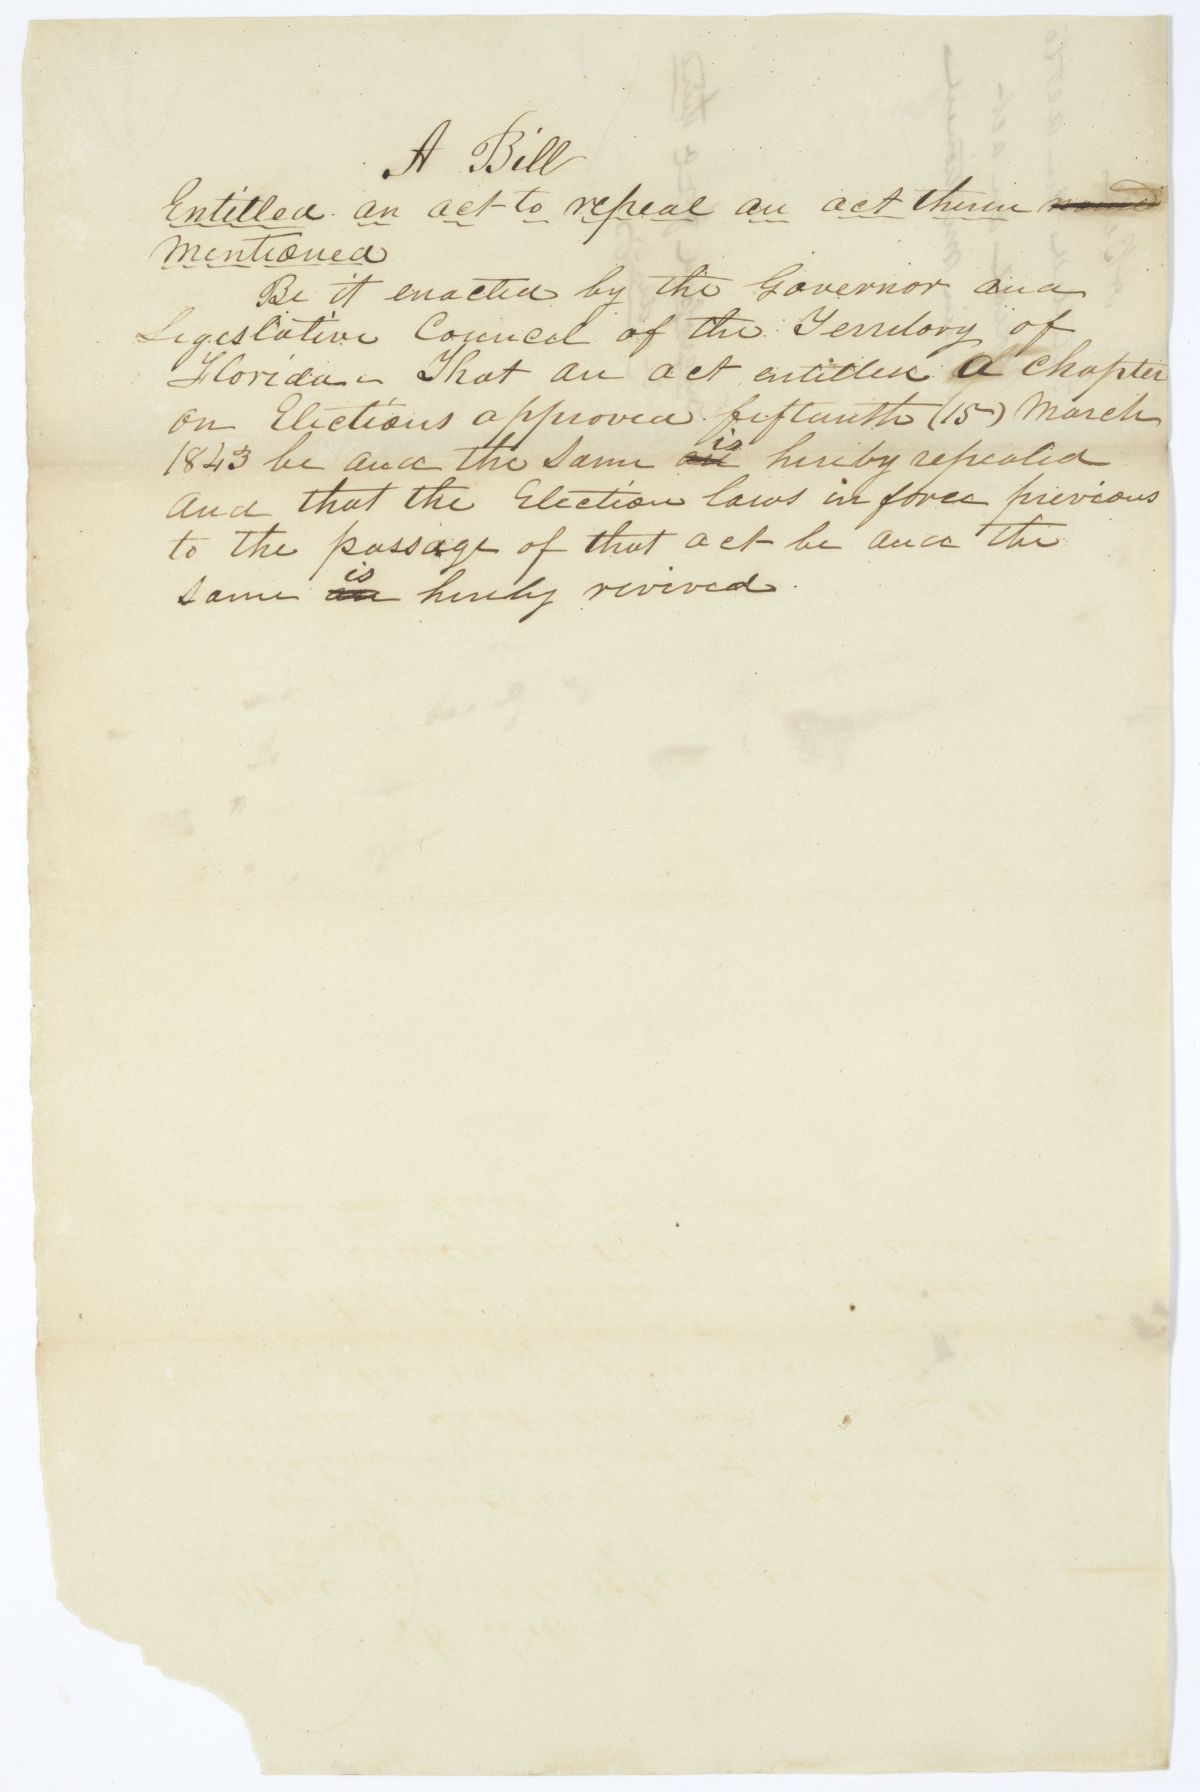 A Bill
Entitled an act to repeal an act therin ~~named~~
Mentioned
Be it enacted by the Governor and
Legislative Council of the Territory of
Florida - That an act entitled a Chapter
on Elections approved fifteenth (15) March
1843 be and the same ~~are~~ is hereby repealed
and that the Election laws in force previous
to the passage of that act be and the
same ~~are~~ is hereby revived.